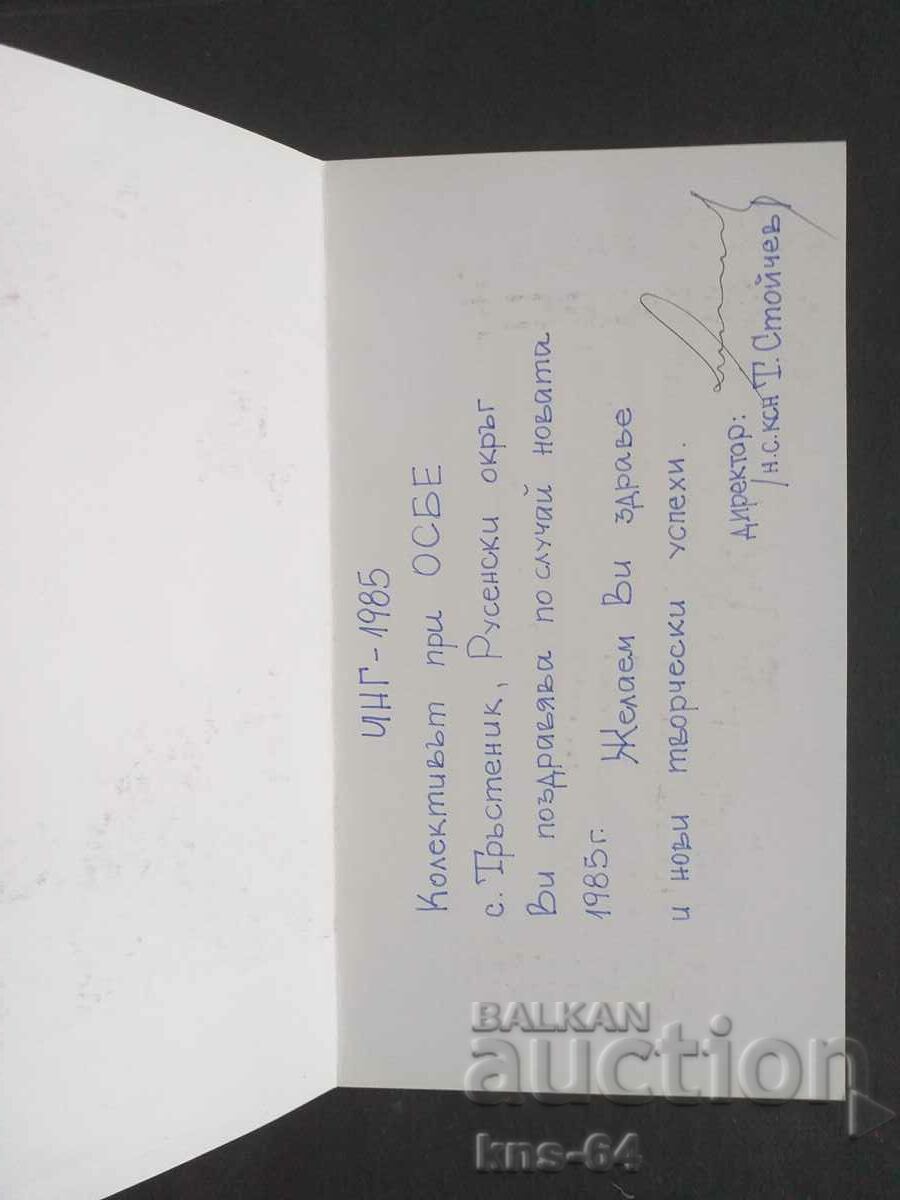 ЧНГ - 1985
Колективът при ОСБЕ
с. Тръстеник, Русенски окръг
Ви поздравява по случай новата
1985г. Желаем Ви здраве
и нови творчески успехи.
Директор:
/н.с. ксн Т. Стойчев/
BALKAN
auction
kns-64